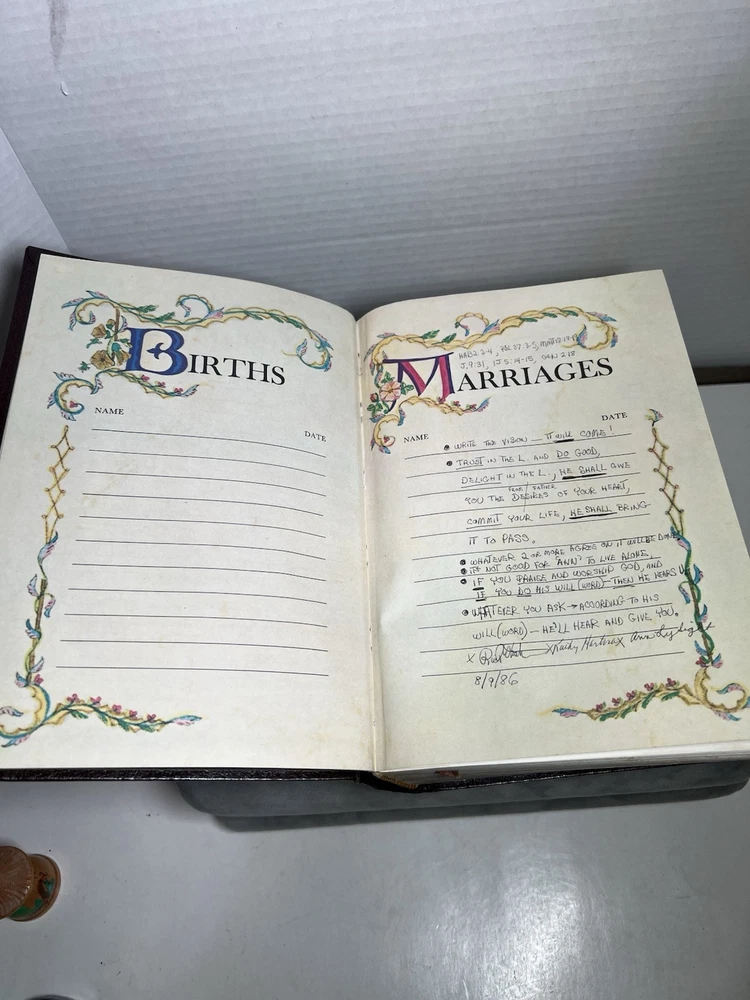 BIRTHS
NAME
DATE
HAB 2:2-4, PSL 37:3-5, MATT 18:19
J. 9:31, 1J 5:14-15, GEN 2:18
MARRIAGES
NAME
DATE
• WRITE THE VISION — IT WILL COME!
• TRUST IN THE L. AND DO GOOD,
DELIGHT IN THE L., HE SHALL GIVE
YOU THE DESIRES OF YOUR HEART,
COMMIT YOUR LIFE, HE SHALL BRING
IT TO PASS.
• WHATEVER 2 OR MORE AGREE ON IT WILL BE DONE
• IT'S NOT GOOD FOR "ANN" TO LIVE ALONE.
• IF YOU PRAISE AND WORSHIP GOD, AND
IF YOU DO HIS WILL (WORD) — THEN HE HEARS US
• WHATEVER YOU ASK → ACCORDING TO HIS
WILL (WORD) — HE'LL HEAR AND GIVE YOU.
X X X Ann
8/9/86